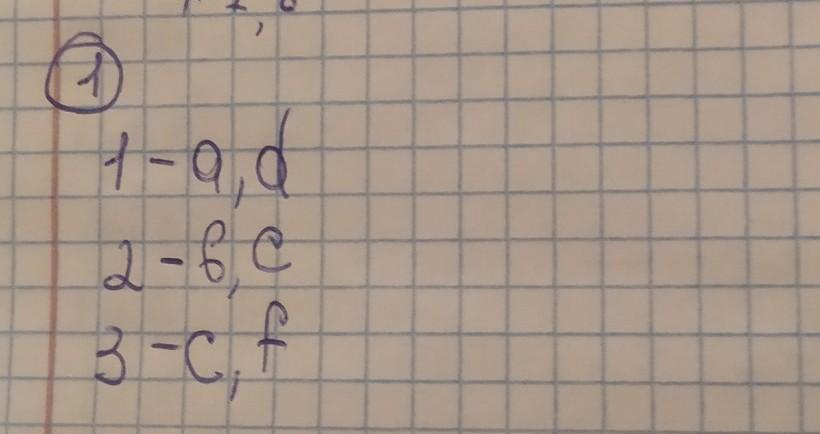 1
1 - a, d
2 - b, e
3 - c, f